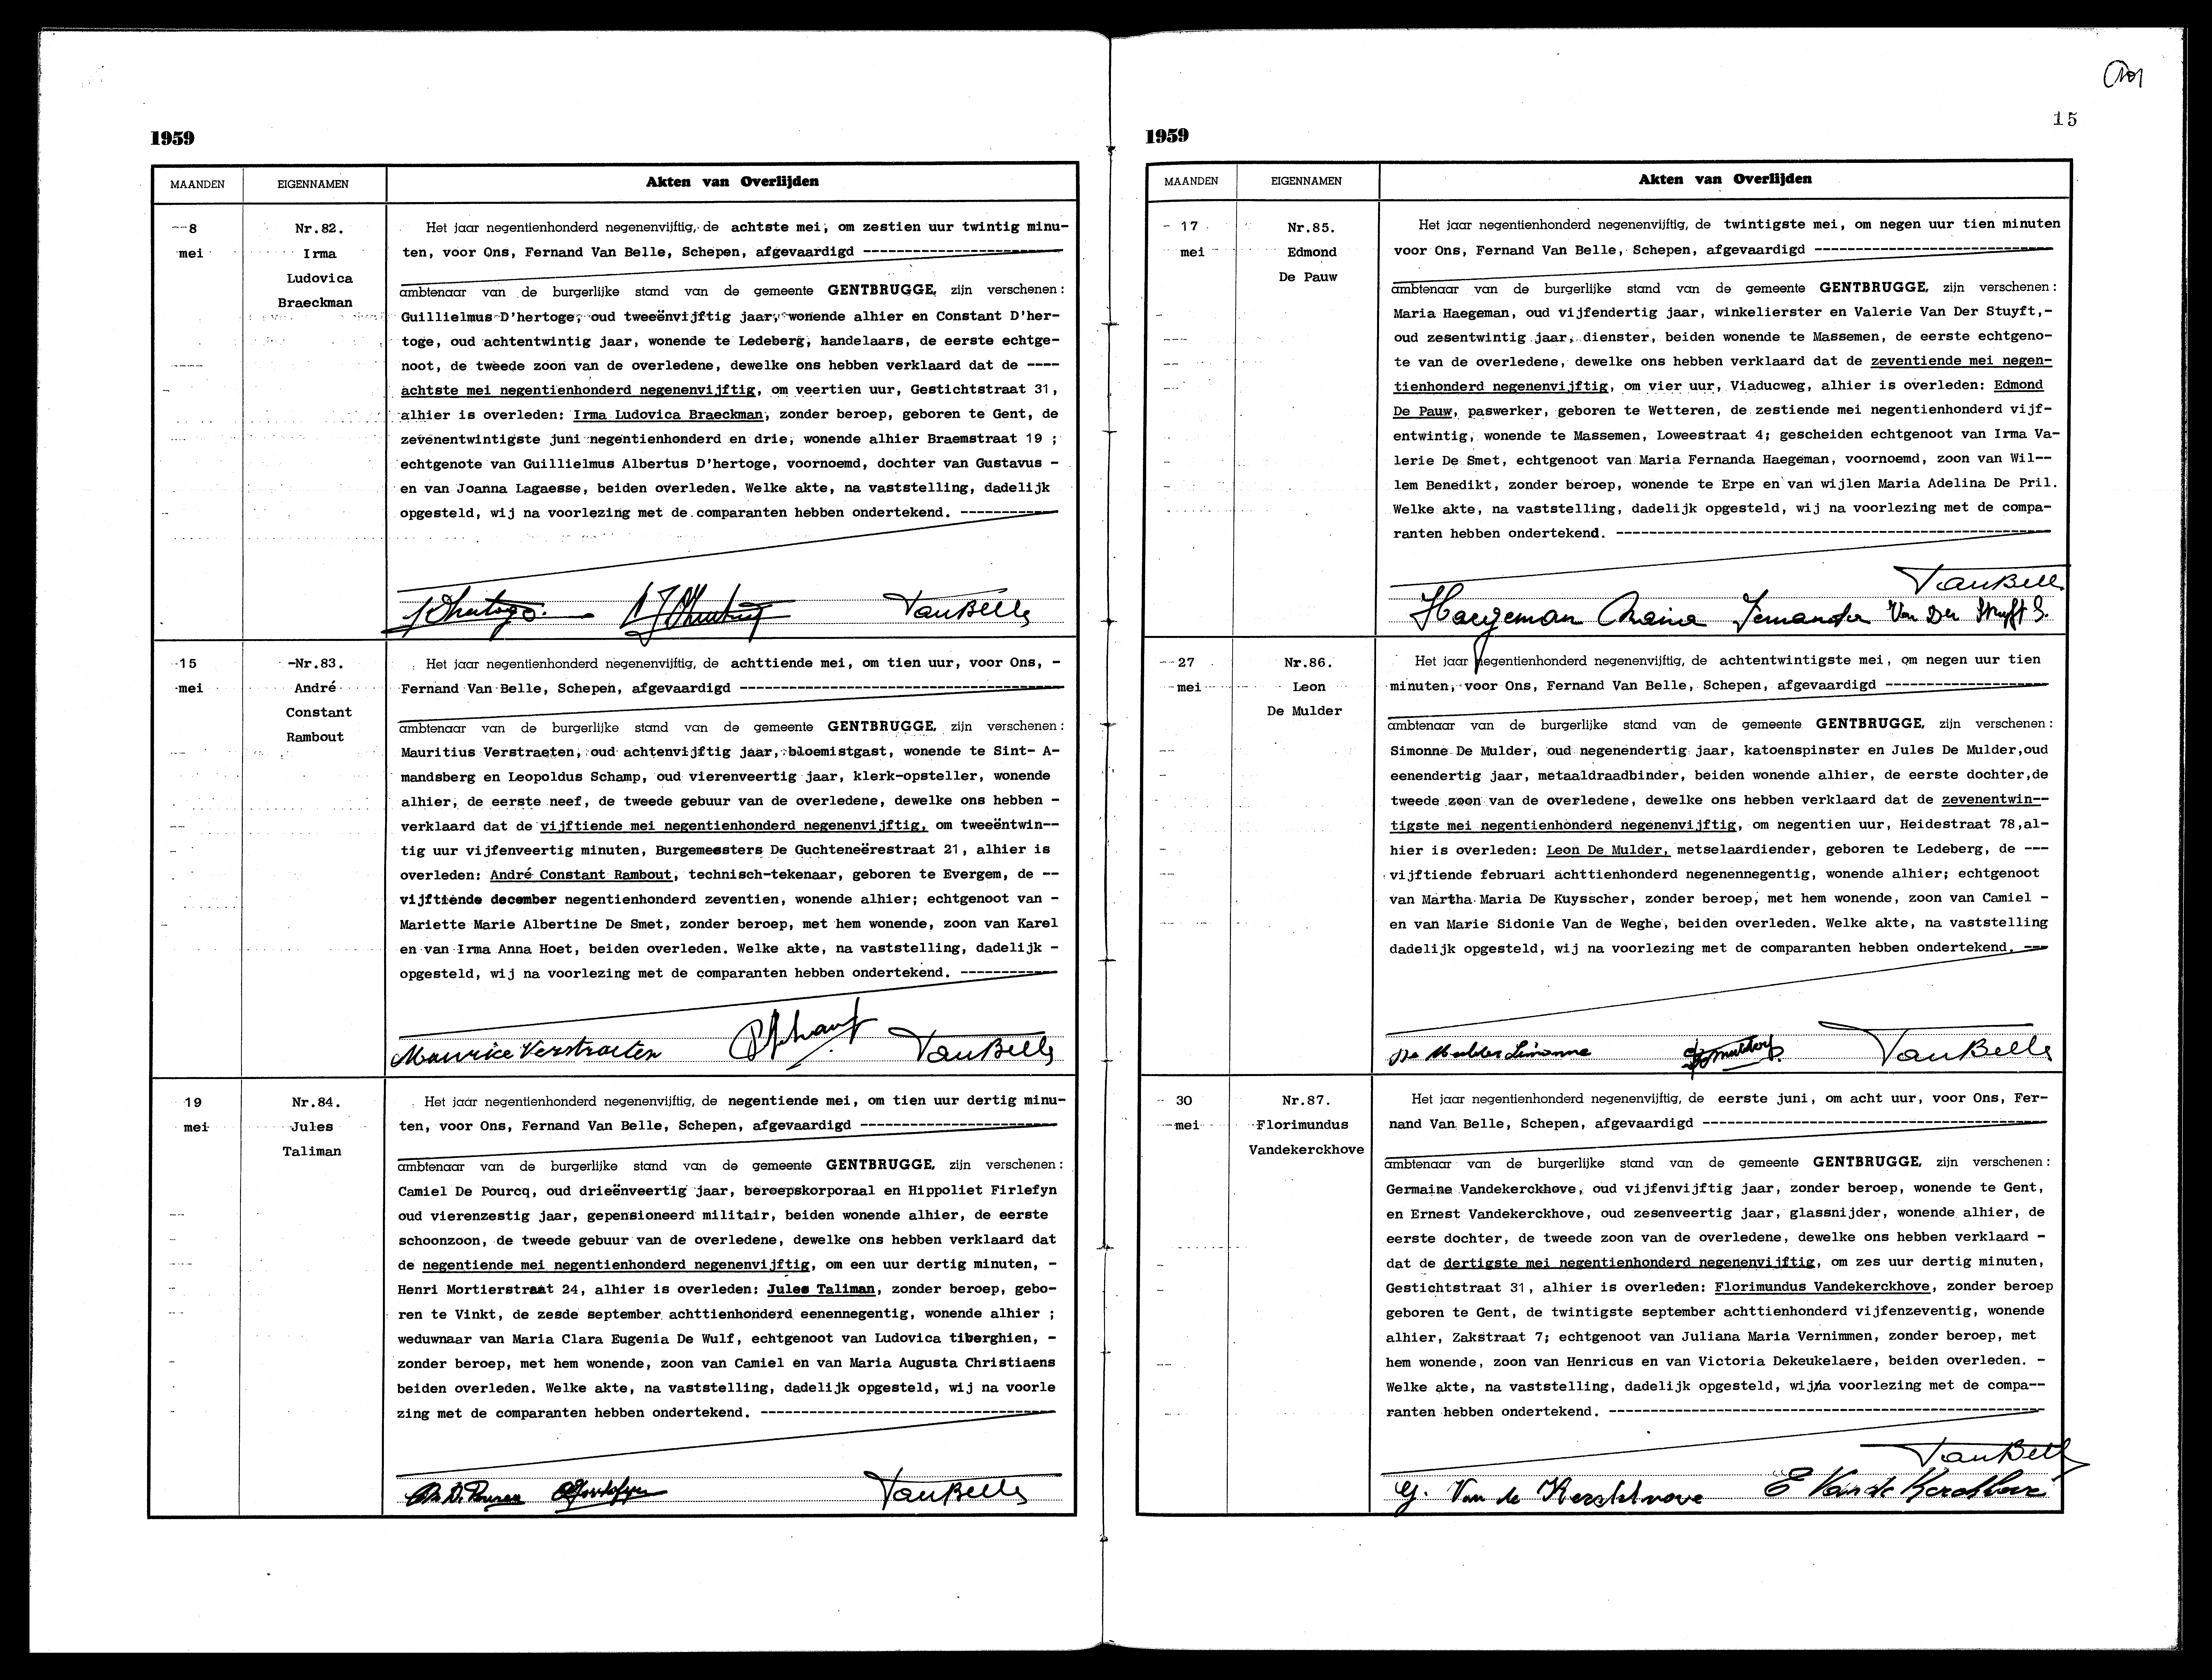 1959
MAANDEN
EIGENNAMEN
Akten van Overlijden
8
mei
Nr.82.
Irma
Ludovica
Braeckman
Het jaar negentienhonderd negenenvijftig, de achtste mei, om zestien uur twintig minu-
ten, voor Ons, Fernand Van Belle, Schepen, afgevaardigd
ambtenaar van de burgerlijke stand van de gemeente GENTBRUGGE, zijn verschenen:
Guillielmus D'hertoge, oud tweeënvijftig jaar, wonende alhier en Constant D'her-
toge, oud achtentwintig jaar, wonende te Ledeberg, handelaars, de eerste echtge-
noot, de tweede zoon van de overledene, dewelke ons hebben verklaard dat de ----
achtste mei negentienhonderd negenenvijftig, om veertien uur, Gestichtstraat 31,
alhier is overleden: Irma Ludovica Braeckman, zonder beroep, geboren te Gent, de
zevenentwintigste juni negentienhonderd en drie, wonende alhier Braemstraat 19 ;
echtgenote van Guillielmus Albertus D'hertoge, voornoemd, dochter van Gustavus -
en van Joanna Lagaesse, beiden overleden. Welke akte, na vaststelling, dadelijk
opgesteld, wij na voorlezing met de comparanten hebben ondertekend.
VanBelle
15
mei
Nr.83.
André
Constant
Rambout
Het jaar negentienhonderd negenenvijftig, de achttiende mei, om tien uur, voor Ons, -
Fernand Van Belle, Schepen, afgevaardigd
ambtenaar van de burgerlijke stand van de gemeente GENTBRUGGE, zijn verschenen:
Mauritius Verstraeten, oud achtenvijftig jaar, bloemistgast, wonende te Sint- A-
mandsberg en Leopoldus Schamp, oud vierenveertig jaar, klerk-opsteller, wonende
alhier, de eerste neef, de tweede gebuur van de overledene, dewelke ons hebben -
verklaard dat de vijftiende mei negentienhonderd negenenvijftig, om tweeëntwin--
tig uur vijfenveertig minuten, Burgemeesters De Guchteneërestraat 21, alhier is
overleden: André Constant Rambout, technisch-tekenaar, geboren te Evergem, de --
vijftiende december negentienhonderd zeventien, wonende alhier; echtgenoot van -
Mariette Marie Albertine De Smet, zonder beroep, met hem wonende, zoon van Karel
en van Irma Anna Hoet, beiden overleden. Welke akte, na vaststelling, dadelijk -
opgesteld, wij na voorlezing met de comparanten hebben ondertekend.
Maurice Verstraeten VanBelle
19
mei
Nr.84.
Jules
Taliman
Het jaar negentienhonderd negenenvijftig, de negentiende mei, om tien uur dertig minu-
ten, voor Ons, Fernand Van Belle, Schepen, afgevaardigd
ambtenaar van de burgerlijke stand van de gemeente GENTBRUGGE, zijn verschenen:
Camiel De Pourcq, oud drieënveertig jaar, beroepskorporaal en Hippoliet Firlefyn
oud vierenzestig jaar, gepensioneerd militair, beiden wonende alhier, de eerste
schoonzoon, de tweede gebuur van de overledene, dewelke ons hebben verklaard dat
de negentiende mei negentienhonderd negenenvijftig, om een uur dertig minuten, -
Henri Mortierstraat 24, alhier is overleden: Jules Taliman, zonder beroep, gebo-
ren te Vinkt, de zesde september achttienhonderd eenennegentig, wonende alhier ;
weduwnaar van Maria Clara Eugenia De Wulf, echtgenoot van Ludovica tiberghien, -
zonder beroep, met hem wonende, zoon van Camiel en van Maria Augusta Christiaens
beiden overleden. Welke akte, na vaststelling, dadelijk opgesteld, wij na voorle
zing met de comparanten hebben ondertekend.
VanBelle
15
1959
MAANDEN
EIGENNAMEN
Akten van Overlijden
17
mei
Nr.85.
Edmond
De Pauw
Het jaar negentienhonderd negenenvijftig, de twintigste mei, om negen uur tien minuten
voor Ons, Fernand Van Belle, Schepen, afgevaardigd
ambtenaar van de burgerlijke stand van de gemeente GENTBRUGGE, zijn verschenen:
Maria Haegeman, oud vijfendertig jaar, winkelierster en Valerie Van Der Stuyft,-
oud zesentwintig jaar, dienster, beiden wonende te Massemen, de eerste echtgeno-
te van de overledene, dewelke ons hebben verklaard dat de zeventiende mei negen-
tienhonderd negenenvijftig, om vier uur, Viaducweg, alhier is overleden: Edmond
De Pauw, paswerker, geboren te Wetteren, de zestiende mei negentienhonderd vijf-
entwintig, wonende te Massemen, Loweestraat 4; gescheiden echtgenoot van Irma Va-
lerie De Smet, echtgenoot van Maria Fernanda Haegeman, voornoemd, zoon van Wil--
lem Benedikt, zonder beroep, wonende te Erpe en van wijlen Maria Adelina De Pril.
Welke akte, na vaststelling, dadelijk opgesteld, wij na voorlezing met de compa-
ranten hebben ondertekend.
VanBelle
Haegeman Maria Fernanda Van Der Stuyft
27
mei
Nr.86.
Leon
De Mulder
Het jaar negentienhonderd negenenvijftig, de achtentwintigste mei, om negen uur tien
minuten, voor Ons, Fernand Van Belle, Schepen, afgevaardigd
ambtenaar van de burgerlijke stand van de gemeente GENTBRUGGE, zijn verschenen:
Simonne De Mulder, oud negenendertig jaar, katoenspinster en Jules De Mulder,oud
eenendertig jaar, metaaldraadbinder, beiden wonende alhier, de eerste dochter,de
tweede zoon van de overledene, dewelke ons hebben verklaard dat de zevenentwin--
tigste mei negentienhonderd negenenvijftig, om negentien uur, Heidestraat 78,al-
hier is overleden: Leon De Mulder, metselaardiender, geboren te Ledeberg, de ---
vijftiende februari achttienhonderd negenennegentig, wonende alhier; echtgenoot
van Martha Maria De Kuysscher, zonder beroep, met hem wonende, zoon van Camiel -
en van Marie Sidonie Van de Weghe, beiden overleden. Welke akte, na vaststelling
dadelijk opgesteld, wij na voorlezing met de comparanten hebben ondertekend. ---
De Mulder Simonne VanBelle
30
mei
Nr.87.
Florimundus
Vandekerckhove
Het jaar negentienhonderd negenenvijftig, de eerste juni, om acht uur, voor Ons, Fer-
nand Van Belle, Schepen, afgevaardigd
ambtenaar van de burgerlijke stand van de gemeente GENTBRUGGE, zijn verschenen:
Germaine Vandekerckhove, oud vijfenvijftig jaar, zonder beroep, wonende te Gent,
en Ernest Vandekerckhove, oud zesenveertig jaar, glassnijder, wonende alhier, de
eerste dochter, de tweede zoon van de overledene, dewelke ons hebben verklaard -
dat de dertigste mei negentienhonderd negenenvijftig, om zes uur dertig minuten,
Gestichtstraat 31, alhier is overleden: Florimundus Vandekerckhove, zonder beroep
geboren te Gent, de twintigste september achttienhonderd vijfenzeventig, wonende
alhier, Zakstraat 7; echtgenoot van Juliana Maria Vernimmen, zonder beroep, met
hem wonende, zoon van Henricus en van Victoria Dekeukelaere, beiden overleden. -
Welke akte, na vaststelling, dadelijk opgesteld, wij/na voorlezing met de compa--
ranten hebben ondertekend.
VanBelle
G. Van de Kerckhove E Van de Kerckhove